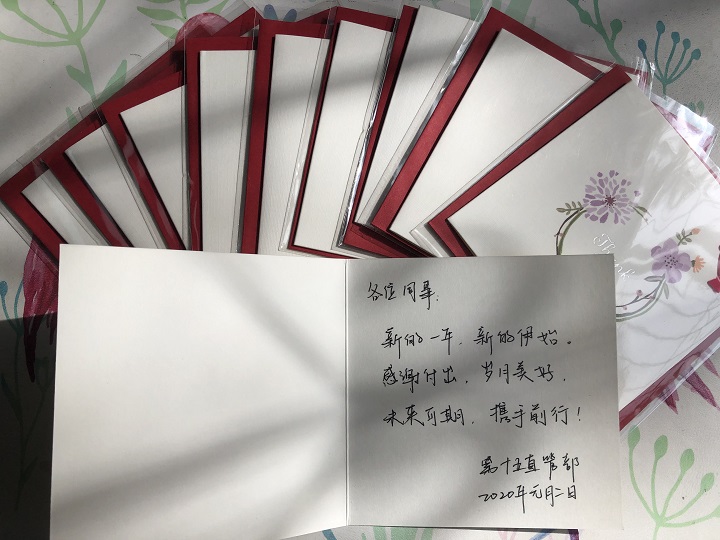 Thank
各位同事:
新的一年,新的伊始。
感谢付出,岁月美好,
未来可期,携手前行!
第十五直管部
2020年元月二日